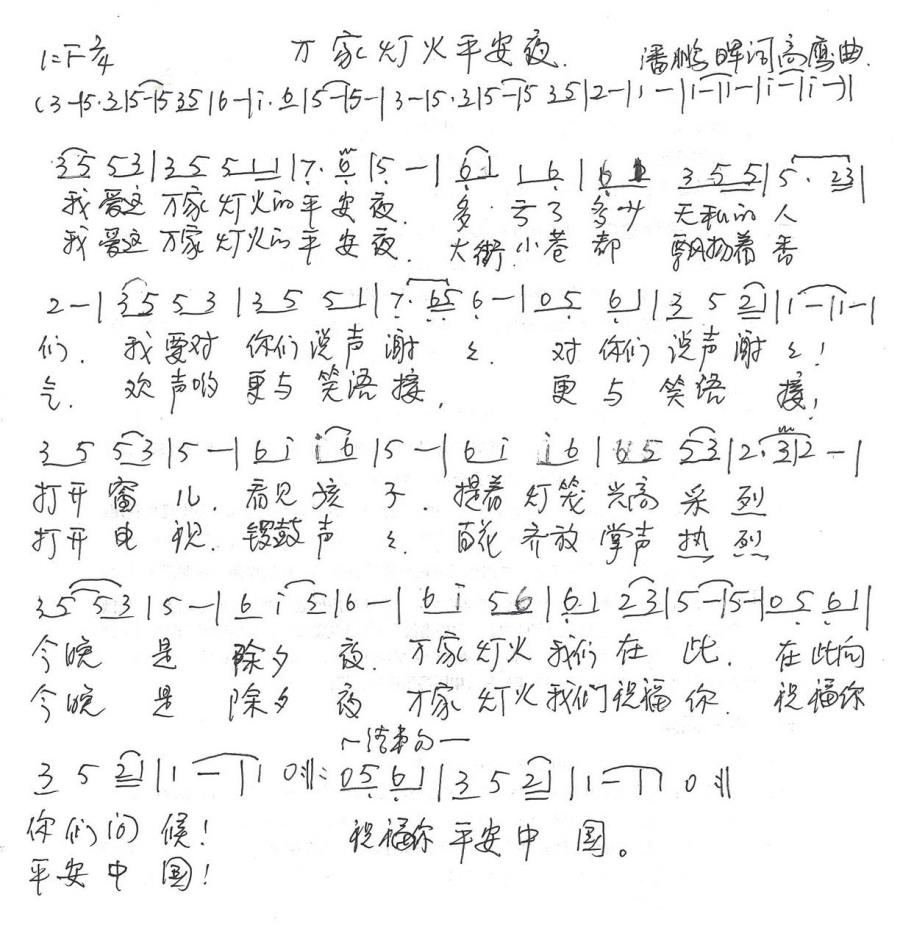 1=F 2/4 万家灯火平安夜. 潘鹏晖词高鹰曲.
(3-|5·3|5-|5 35|6-|i·6|5-|5-|3-|5·3|5-|5 35|2-|1-|1-|1-|i-|i-)|
35 53|35 511|7·6|5-|61 16|61 355|5·23|
我爱这万家灯火的平安夜. 多亏了多少无私的人
我爱这万家灯火的平安夜. 大街小巷都飘扬着香
2-|35 53|35 51|7·65 6-|05 61|3 5 21|1-|1-|
们. 我要对你们说声谢々. 对你们说声谢々!
气. 欢声哟更与笑语接, 更与笑语接,
35 53|5-|6i i6|5-|6i i6|65 53|2·3|2-|
打开窗儿. 看见孩子. 提着灯笼兴高采列
打开电视. 锣鼓声々. 百花齐放掌声热烈
35 53|5-|6i5|6-|6i 56|6·1 23|5-|5-|05 61|
今晚是除夕夜. 万家灯火我们在此. 在此向
今晚是除夕夜 万家灯火我们祝福你. 祝福你
~结束句一
3 5 21|1-|1 0:‖ 05 61|3 5 21|1-|1 0‖
你们问候! 祝福你平安中国。
平安中国!